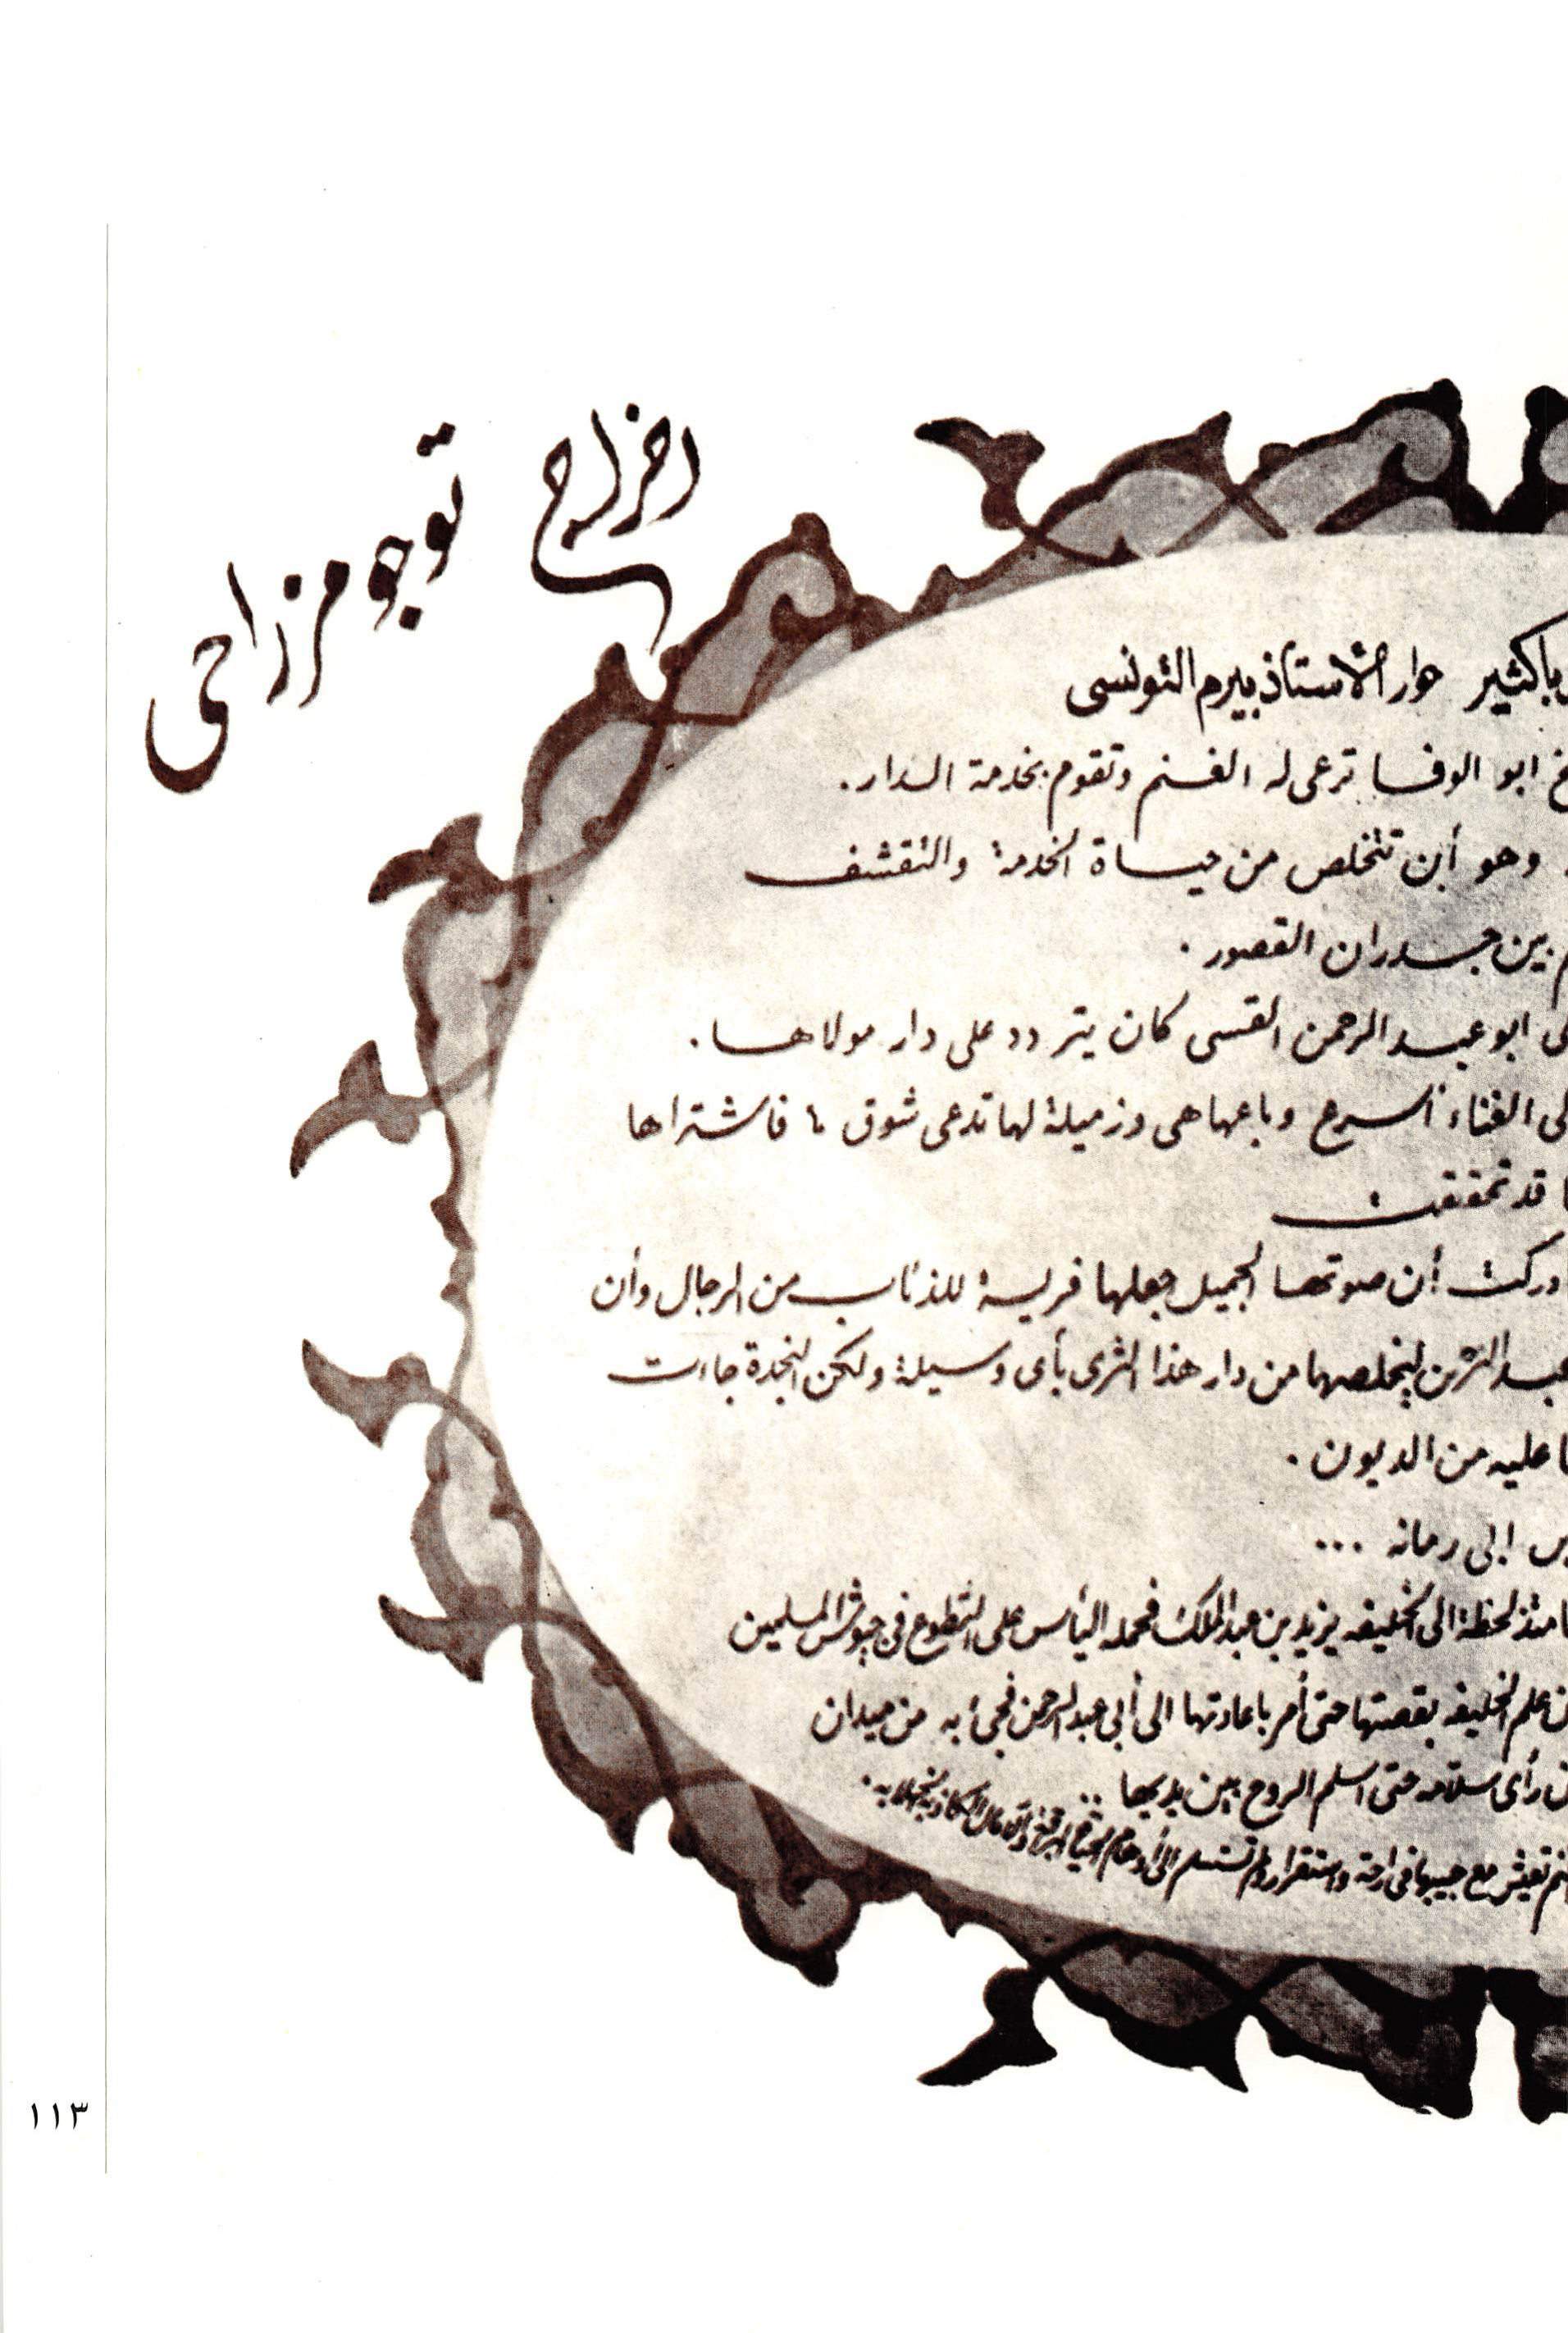 اخراج توجو مزراحى
باكثير حوار الأستاذ بيرم التونسى
ابو الوفا ترعى له الغنم وتقوم بخدمة الدار.
وهو أن تتخلص من حياة الخدمة والتقشف
بين جدران القصور.
ابو عبد الرحمن القسى كان يتردد على دار مولاها.
الغناء أسرع وباعها هى وزميلة لها تدعى شوق فاشتراها
قد تحققت
ادركت أن صوتها الجميل جعلها فريسة للذئاب من الرجال وأن
عبد الرحمن ليخلصها من دار هذا الثرى بأى وسيلة ولكن النجدة جاءت
عليه من الديون.
إلى رمانه ...
منذ لحظة الى الخليفه يزيد بن عبد الملك فحمله اليأس على التطوع فى جيوش المسلمين
علم الخليفه بقصتها حتى أمر باعادتها الى أبى عبد الرحمن فجئ به من ميدان
رأى سلامه حتى اسلم الروح بين يديها ..
تعيش مع حبيبها فى راحة واستقرار لم تستسلم الى أوهام الحياة البراقة والآمال الكاذبة الخلابه.
١١٣